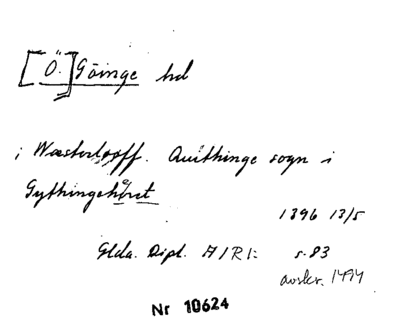 [Ö.] Göinge hd
i Westerlooff. Quithinge sogn i
Gythingehäret
1396 13/5
Glda. Dipl. A I R I: s. 83
avskr. 1494
Nr 10624